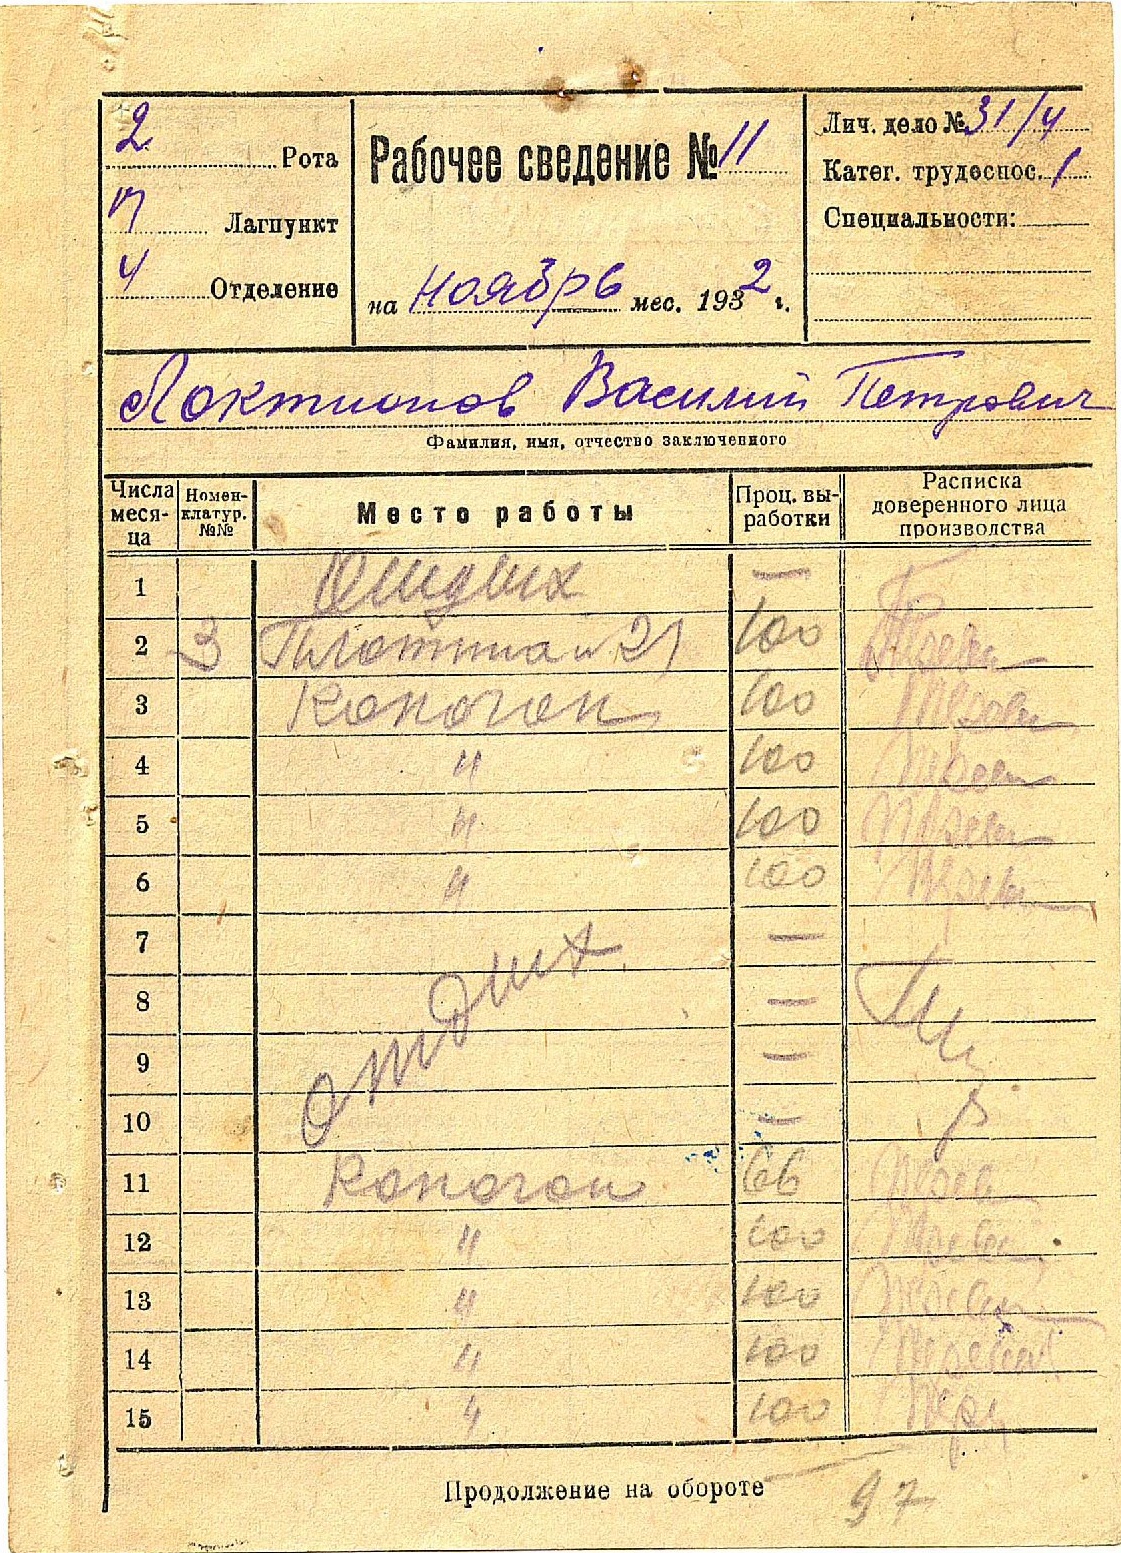 2 Рота
Лагпункт
4 Отделение
Рабочее сведение № 11
на ноябрь мес. 1932 г.
Лич. дело № 31/4
Катег. трудоспос. 1
Специальности:
Локтионов Василий Петрович
Фамилия, имя, отчество заключенного
Числа меся-ца Номен-клатур. №№ Место работы Проц. вы-работки Расписка доверенного лица производства
1 —
2 3 Плотина 21 100
3 Коногон 100
4 " 100
5 " 100
6 " 100
7 —
отдых
8 —
9 —
10 —
11 Коногон 66
12 " 100
13 " 100
14 " 100
15 " 100
Продолжение на обороте 97